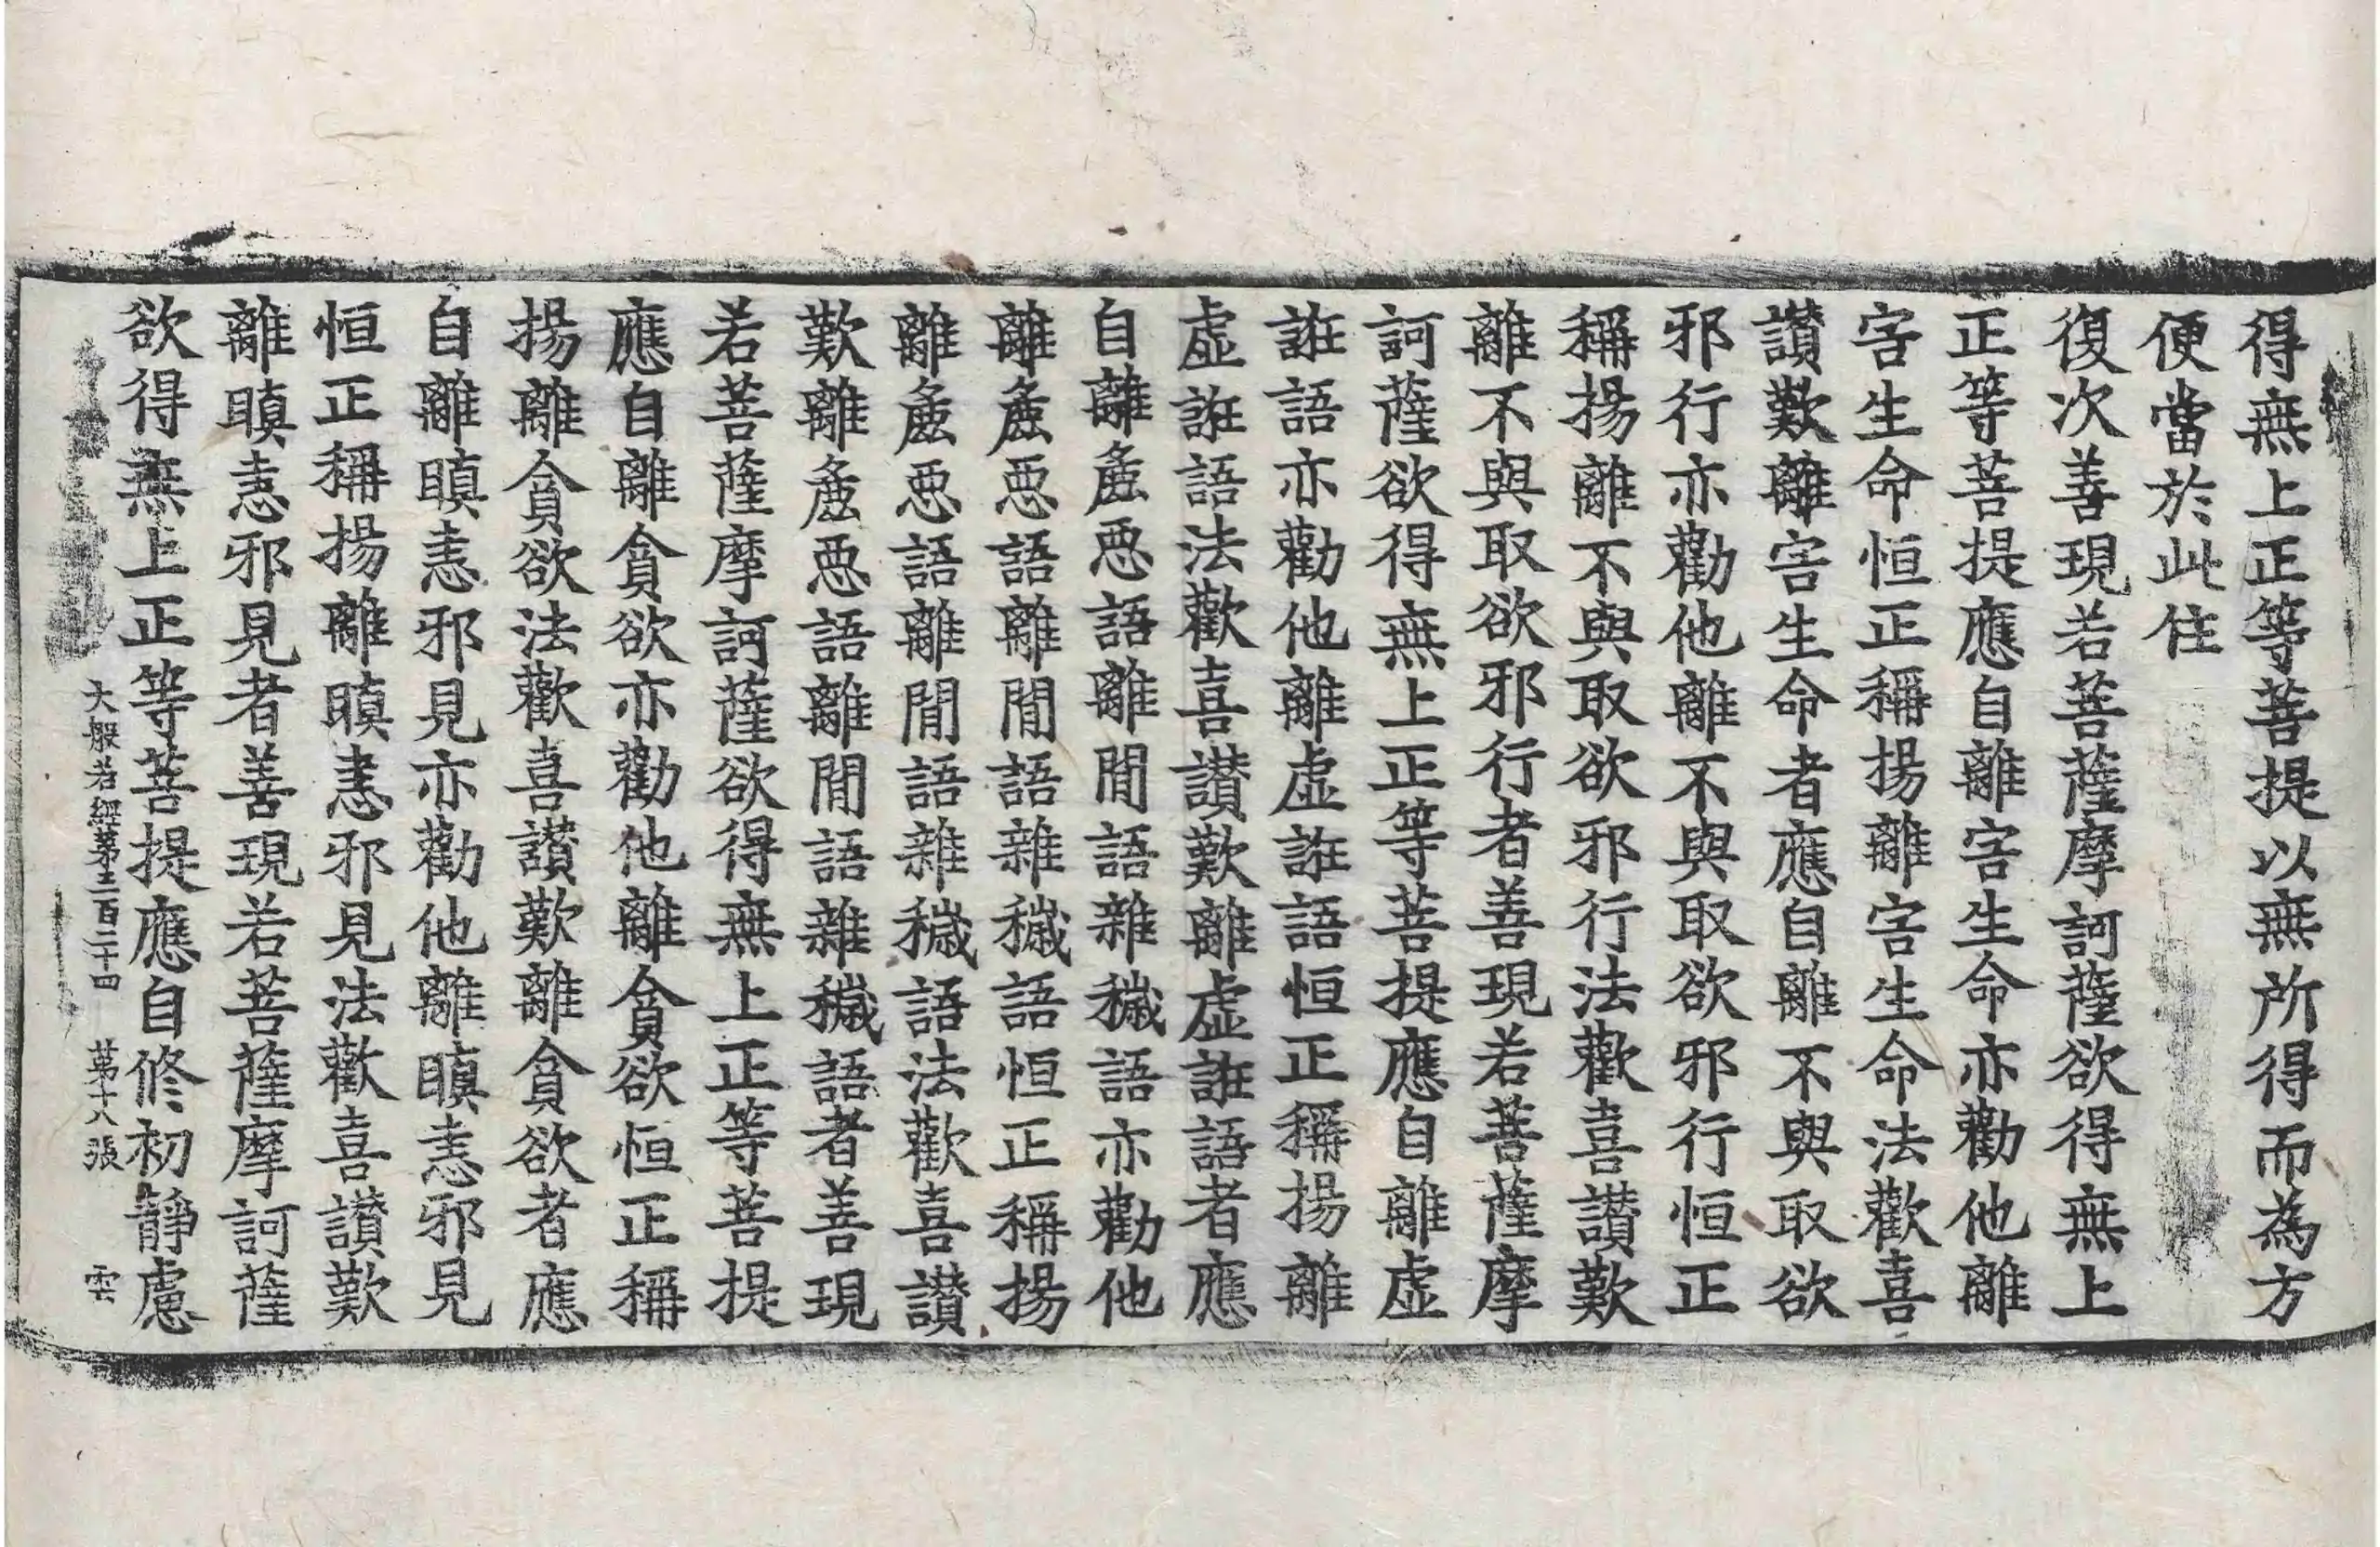 得無上正等菩提以無所得而為方
便當於此住
復次善現若菩薩摩訶薩欲得無上
正等菩提應自離害生命亦勸他離
害生命恒正稱揚離害生命法歡喜
讃歎離害生命者應自離不與取欲
邪行亦勸他離不與取欲邪行恒正
稱揚離不與取欲邪行法歡喜讃歎
離不與取欲邪行者善現若菩薩摩
訶薩欲得無上正等菩提應自離虛
誑語亦勸他離虛誑語恒正稱揚離
虛誑語法歡喜讃歎離虛誑語者應
自離麁惡語離間語雜穢語亦勸他
離麁惡語離間語雜穢語恒正稱揚
離麁惡語離間語雜穢語法歡喜讃
歎離麁惡語離間語雜穢語者善現
若菩薩摩訶薩欲得無上正等菩提
應自離貪欲亦勸他離貪欲恒正稱
揚離貪欲法歡喜讃歎離貪欲者應
自離瞋恚邪見亦勸他離瞋恚邪見
恒正稱揚離瞋恚邪見法歡喜讃歎
離瞋恚邪見者善現若菩薩摩訶薩
欲得無上正等菩提應自修初靜慮
大般若經第三百二十四 第十八張 雲